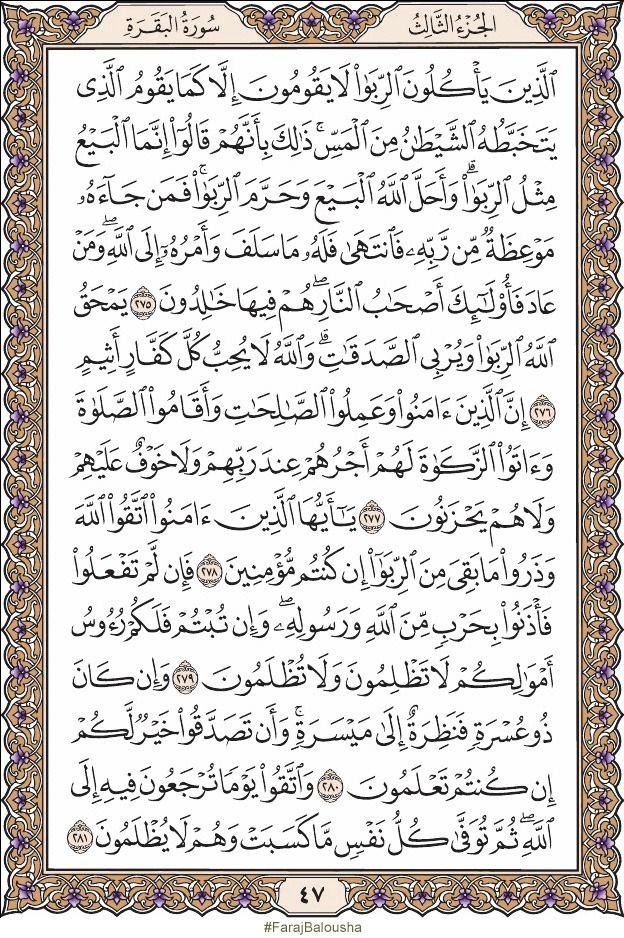 الجُزْءُ الثَّالِثُ
سُورَةُ البَقَرَةِ
ٱلَّذِينَ يَأْكُلُونَ ٱلرِّبَوٰا۟ لَا يَقُومُونَ إِلَّا كَمَا يَقُومُ ٱلَّذِى
يَتَخَبَّطُهُ ٱلشَّيْطَٰنُ مِنَ ٱلْمَسِّ ۚ ذَٰلِكَ بِأَنَّهُمْ قَالُوٓا۟ إِنَّمَا ٱلْبَيْعُ
مِثْلُ ٱلرِّبَوٰا۟ ۗ وَأَحَلَّ ٱللَّهُ ٱلْبَيْعَ وَحَرَّمَ ٱلرِّبَوٰا۟ ۚ فَمَن جَآءَهُۥ
مَوْعِظَةٌ مِّن رَّبِّهِۦ فَٱنتَهَىٰ فَلَهُۥ مَا سَلَفَ وَأَمْرُهُۥٓ إِلَى ٱللَّهِ ۖ وَمَنْ
عَادَ فَأُو۟لَٰٓئِكَ أَصْحَٰبُ ٱلنَّارِ ۖ هُمْ فِيهَا خَٰلِدُونَ ٢٧٥ يَمْحَقُ
ٱللَّهُ ٱلرِّبَوٰا۟ وَيُرْبِى ٱلصَّدَقَٰتِ ۗ وَٱللَّهُ لَا يُحِبُّ كُلَّ كَفَّارٍ أَثِيمٍ
٢٧٦ إِنَّ ٱلَّذِينَ ءَامَنُوا۟ وَعَمِلُوا۟ ٱلصَّٰلِحَٰتِ وَأَقَامُوا۟ ٱلصَّلَوٰةَ
وَءَاتَوُا۟ ٱلزَّكَوٰةَ لَهُمْ أَجْرُهُمْ عِندَ رَبِّهِمْ وَلَا خَوْفٌ عَلَيْهِمْ
وَلَا هُمْ يَحْزَنُونَ ٢٧٧ يَٰٓأَيُّهَا ٱلَّذِينَ ءَامَنُوا۟ ٱتَّقُوا۟ ٱللَّهَ
وَذَرُوا۟ مَا بَقِىَ مِنَ ٱلرِّبَوٰٓا۟ إِن كُنتُم مُّؤْمِنِينَ ٢٧٨ فَإِن لَّمْ تَفْعَلُوا۟
فَأْذَنُوا۟ بِحَرْبٍ مِّنَ ٱللَّهِ وَرَسُولِهِۦ ۖ وَإِن تُبْتُمْ فَلَكُمْ رُءُوسُ
أَمْوَٰلِكُمْ لَا تَظْلِمُونَ وَلَا تُظْلَمُونَ ٢٧٩ وَإِن كَانَ
ذُو عُسْرَةٍ فَنَظِرَةٌ إِلَىٰ مَيْسَرَةٍ ۚ وَأَن تَصَدَّقُوا۟ خَيْرٌ لَّكُمْ
إِن كُنتُمْ تَعْلَمُونَ ٢٨٠ وَٱتَّقُوا۟ يَوْمًا تُرْجَعُونَ فِيهِ إِلَى
ٱللَّهِ ۖ ثُمَّ تُوَفَّىٰ كُلُّ نَفْسٍ مَّا كَسَبَتْ وَهُمْ لَا يُظْلَمُونَ ٢٨١
٤٧
#FarajBalousha